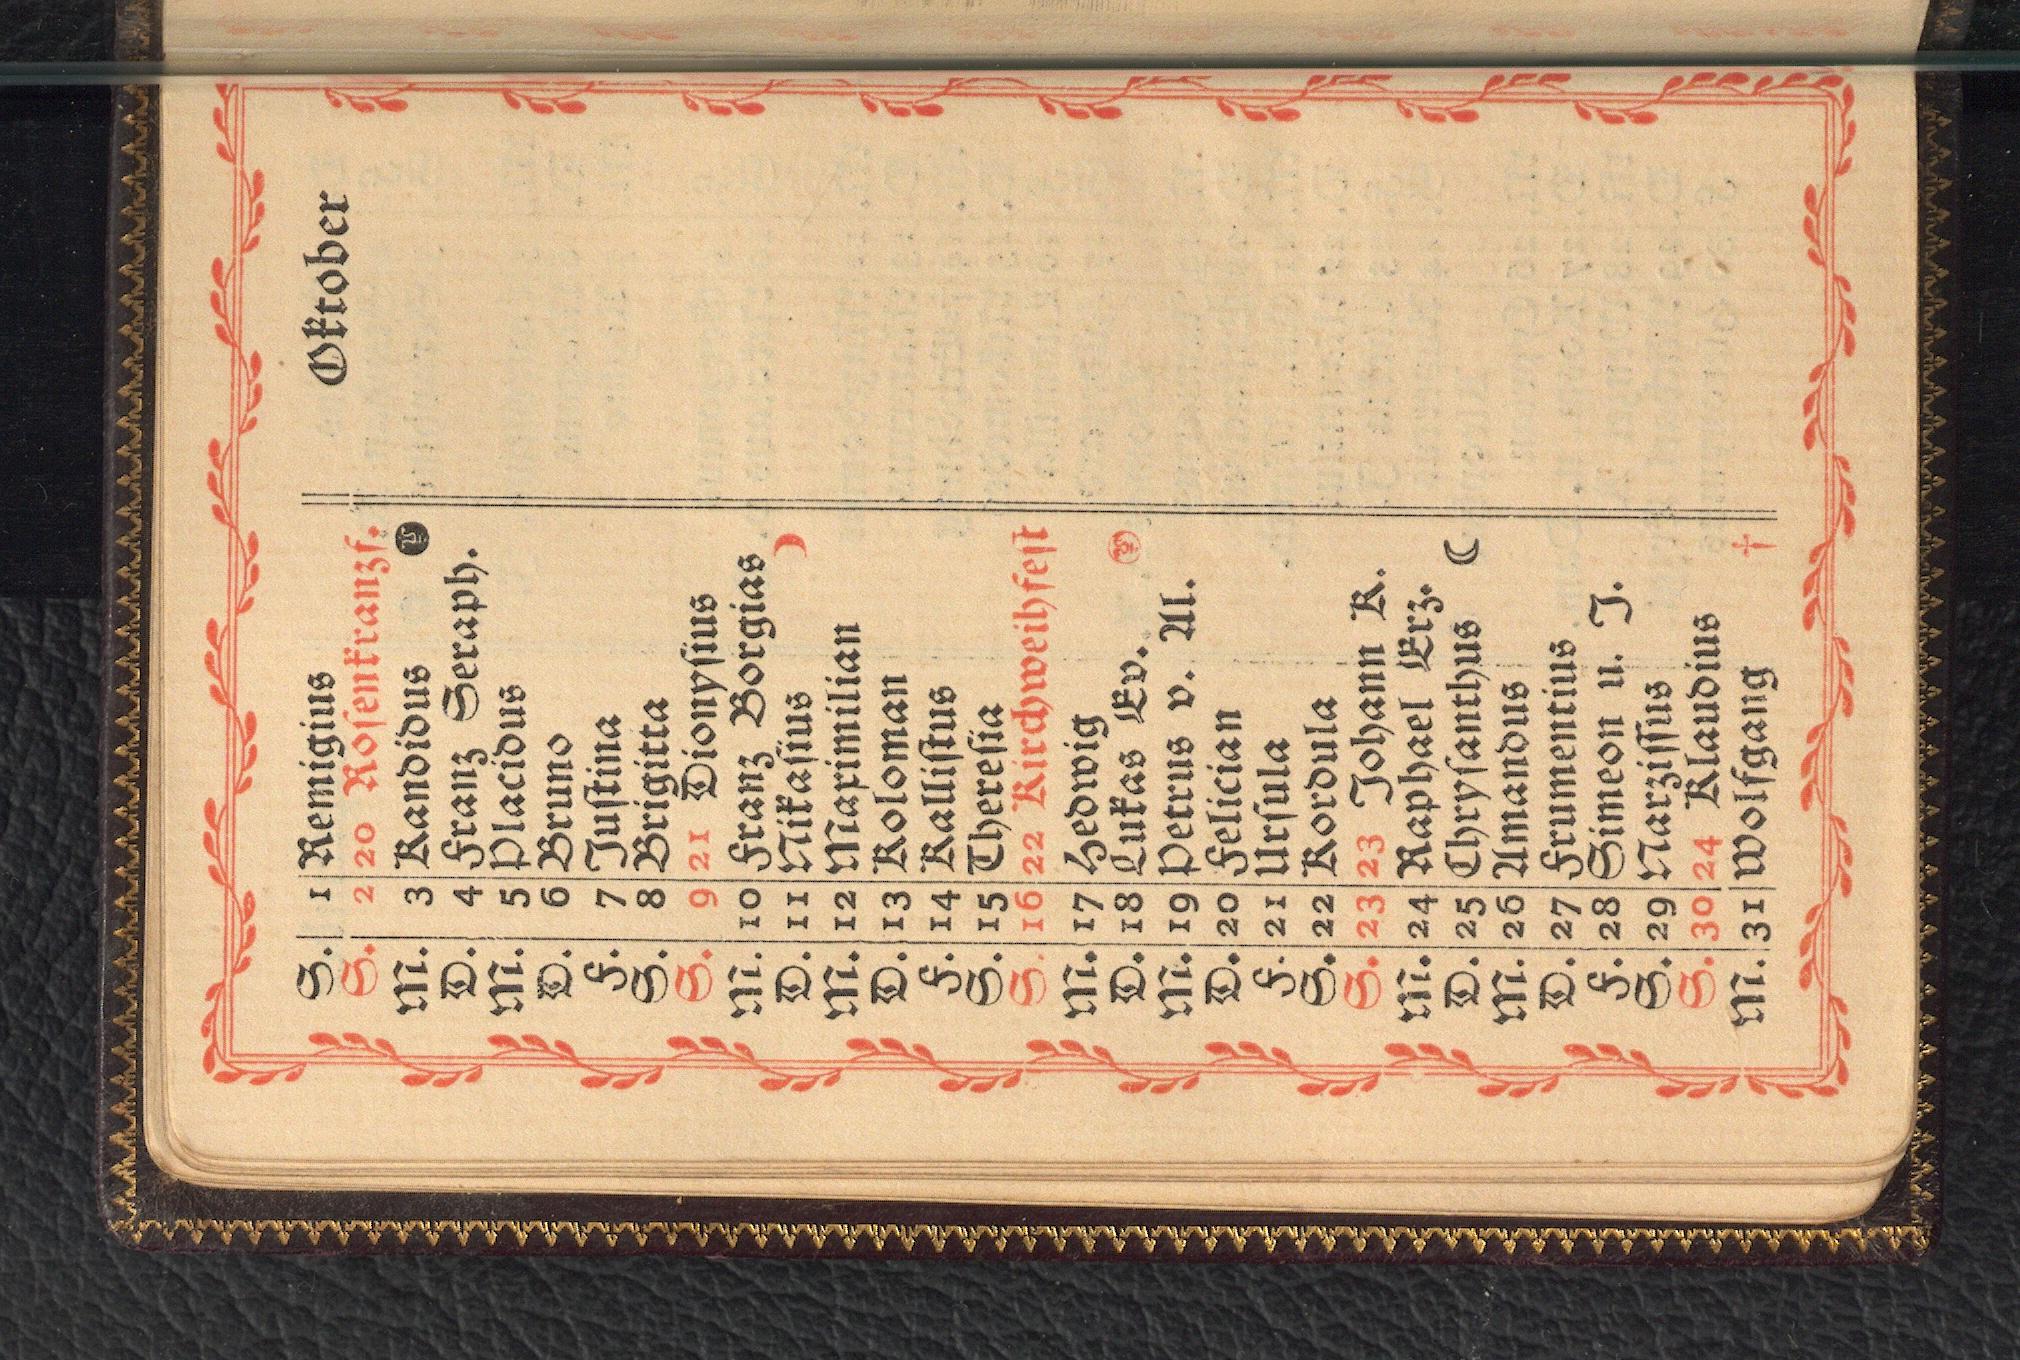 Oktober
S. 1 Remigius
S. 2 20 Rosenkranzf.
M. 3 Kandidus
D. 4 Franz Seraph.
M. 5 Placidus
D. 6 Bruno
F. 7 Justina
S. 8 Brigitta
S. 9 21 Dionysius
M. 10 Franz Borgias
D. 11 Nikasius
M. 12 Maximilian
D. 13 Koloman
F. 14 Kallistus
S. 15 Theresia
S. 16 22 Kirchweihfest
M. 17 Hedwig
D. 18 Lukas Ev.
M. 19 Petrus v. Al.
D. 20 Felician
F. 21 Ursula
S. 22 Kordula
S. 23 23 Johann K.
M. 24 Raphael Erz.
D. 25 Chrysanthus
M. 26 Amandus
D. 27 Frumentius
F. 28 Simeon u. J.
S. 29 Narzissus
S. 30 24 Klaudius
M. 31 Wolfgang †